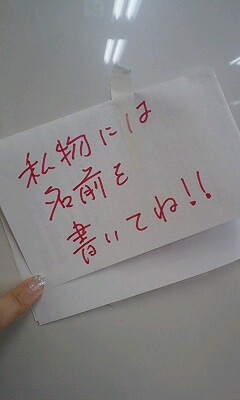 私物には
名前を
書いてね!!